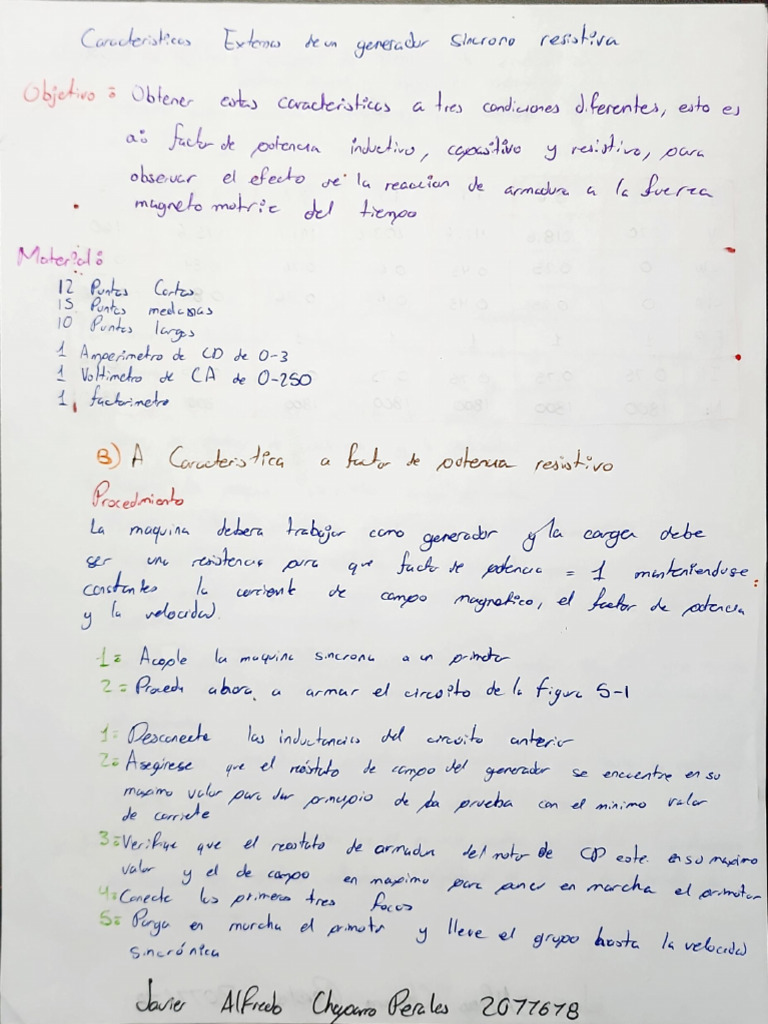 Caracteristicas Externas de un generador sincrono resistiva
Objetivo = Obtener estas caracteristicas a tres condiciones diferentes, esto es
a: factor de potencia inductivo, capasitivo y resistivo, para
observar el efecto de la reaccion de armadura a la fuerza
magneto motriz del tiempo
Material:
12 Puntas Cortas
15 Puntas medianas
10 Puntas largas
1 Amperimetro de CD de 0-3
1 Voltimetro de CA de 0-250
1 factorimetro
B) A Caracteristica a factor de potencia resistivo
Procedimiento
La maquina debera trabajar como generador y la carga debe
ser una resistencia para que factor de potencia = 1 manteniendose
constantes la corriente de campo magnetico, el factor de potencia
y la velocidad.
1= Acople la maquina sincrona a un primotor
2= Proceda ahora a armar el circuito de la figura 5-1
1= Desconecte las inductancias del circuito anterior
2= Asegurese que el reostato de campo del generador se encuentre en su
maximo valor para dar principio de la prueba con el minimo valor
de corriete
3= Verifique que el reostato de armadura del motor de CD este en su maximo
valor y el de campo en maximo para poner en marcha el primotor
4= Conecte los primeros tres focos
5= Ponga en marcha el primotor y lleve el grupo hasta la velocidad
sincrónica
Javier Alfredo Chaparro Perales 2077678